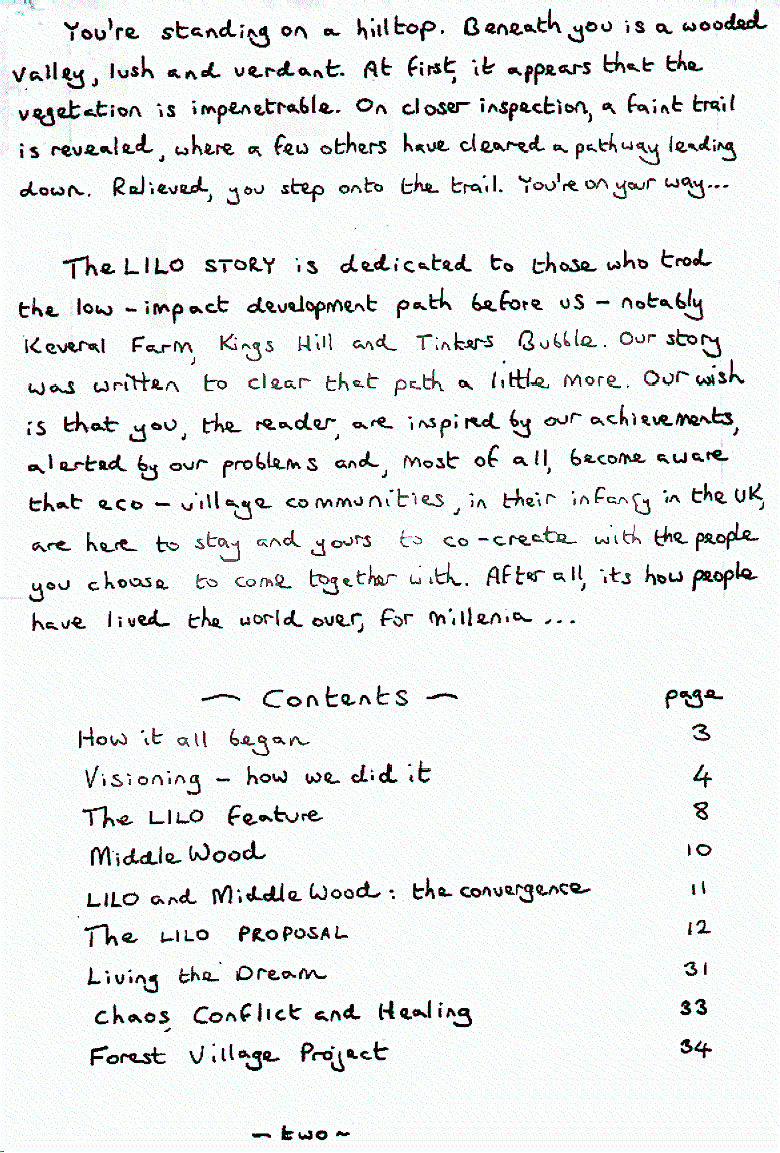 You're standing on a hilltop. Beneath you is a wooded
valley, lush and verdant. At first, it appears that the
vegetation is impenetrable. On closer inspection, a faint trail
is revealed, where a few others have cleared a pathway leading
down. Relieved, you step onto the trail. You're on your way...
The LILO STORY is dedicated to those who trod
the low-impact development path before us - notably
Keveral Farm, Kings Hill and Tinkers Bubble. Our story
was written to clear that path a little more. Our wish
is that you, the reader, are inspired by our achievements,
alerted by our problems and, most of all, become aware
that eco-village communities, in their infancy in the UK,
are here to stay and yours to co-create with the people
you choose to come together with. After all, its how people
have lived the world over, for millenia ...
- Contents - page
How it all began 3
Visioning - how we did it 4
The LILO Feature 8
Middle Wood 10
LILO and Middle Wood : the convergence 11
The LILO PROPOSAL 12
Living the Dream 31
Chaos, Conflict and Healing 33
Forest Village Project 34
- two ~